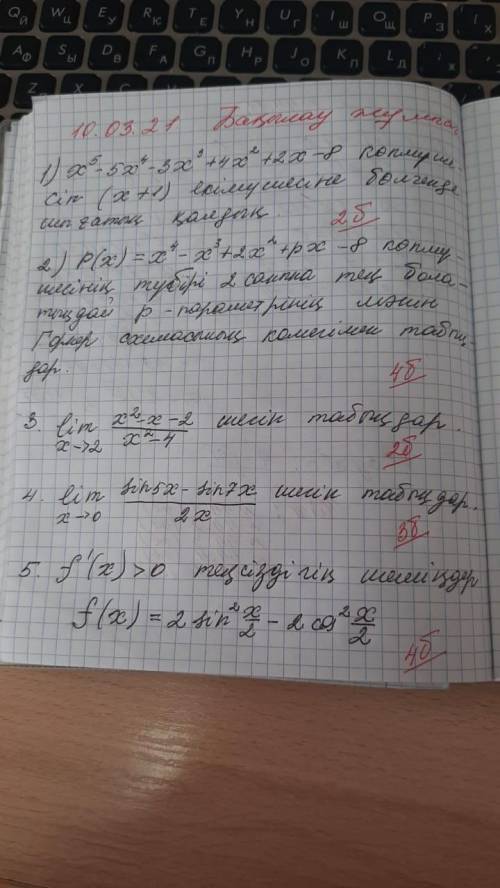 10.03.21 Бақылау жұмысы
1) x⁵-5x⁴-3x³+4x²+2x-8 көпмүше
сін (x+1) екімүшесіне бөлгенде
шығатын қалдық. 2б
2) P(x) = x⁴-x³+2x²+px-8 көпмү-
шесінің түбірі 2 санына тең бола-
тындай p-параметрінің мәнін
Горнер схемасының көмегімен табың
дар. 4б
3. lim x→2 (x²-x-2)/(x²-4) шегін табыңдар. 2б
4. lim x→0 (sin5x-sin7x)/2x шегін табыңдар. 3б
5. f'(x)>0 теңсіздігін шешіңдер
f(x) = 2 sin² x/2 - 2 cos² x/2 4б